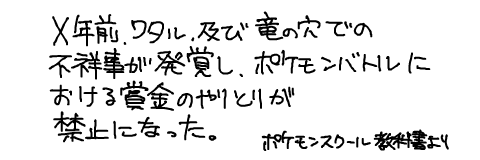 X年前、ワタル、及び竜の穴での
不祥事が発覚し、ポケモンバトルに
おける賞金のやりとりが
禁止になった。
ポケモンスクール教科書より